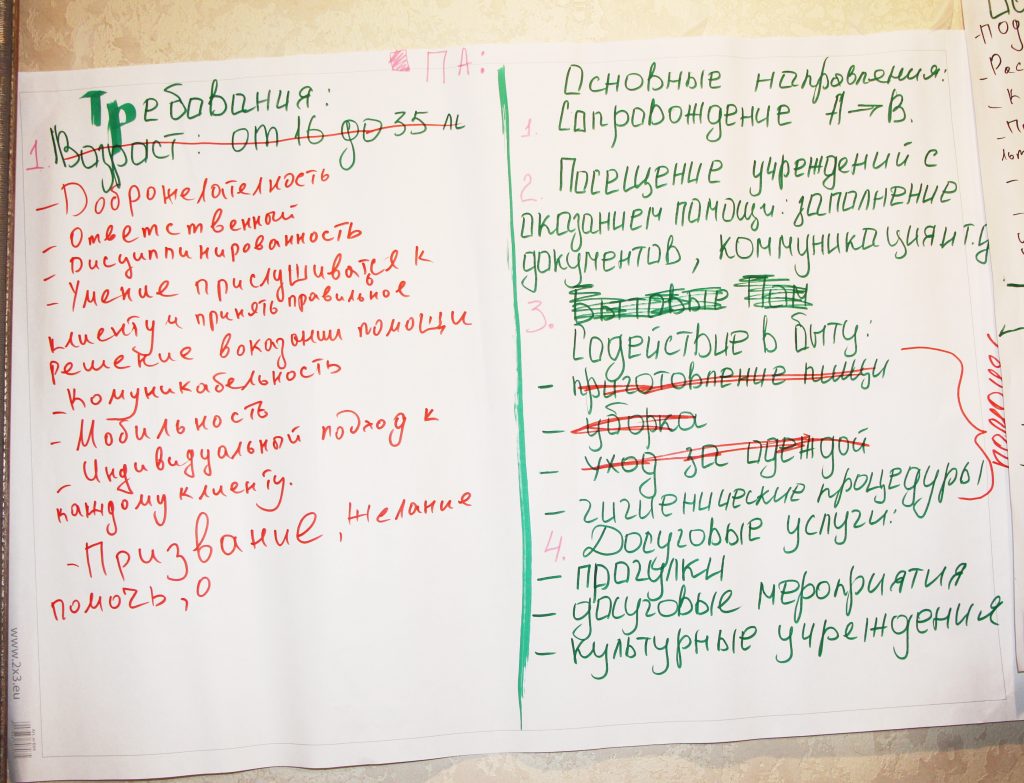 ПА:
Требования:
1. Возраст: от 16 до 35 лс
- Доброжелателкость
- Ответственный
- Дисциппинированность
- Умение прислушиватся к
клиенту и принять правильное
решение воказании помощи
- Комуникабельность
- Мобильность
- Индивидуальной подход к
каждому клиенту.
- Призвание, желание
помочь, о
Основные направления:
1. Сопровождение А→В.
2. Посещение учреждений с
оказанием помощи: заполнение
документов, коммуникация и т.д
3. Бытовые Пом
Содействие в быту:
- приготовление пищи
- уборка
- уход за одеждой
- гигиенические процедуры
помощь
4. Досуговые услуги:
- прогулки
- досуговые мероприятия
- культурные учреждения
www.2x3.eu